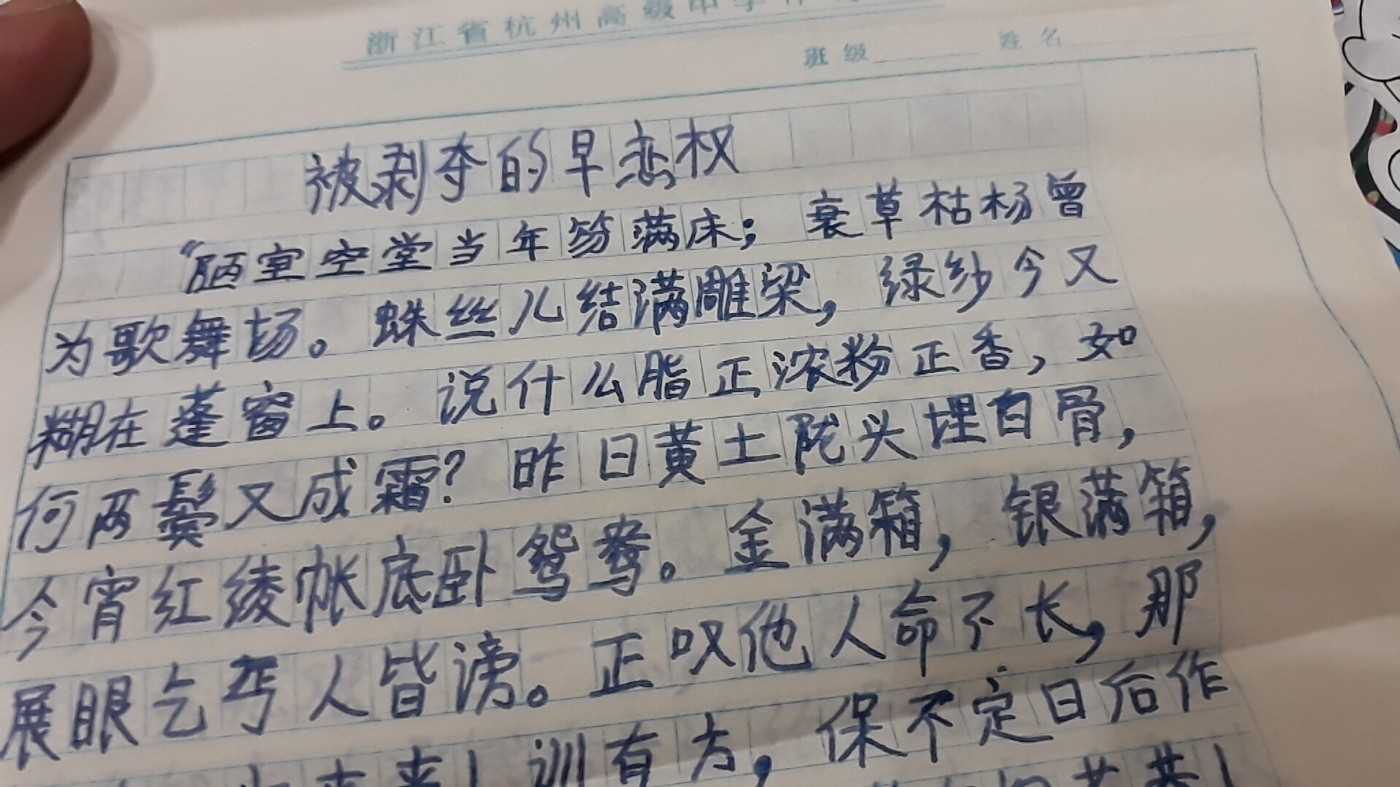 浙江省杭州高级中学作
班级 姓名
被剥夺的早恋权
“陋室空堂当年笏满床；衰草枯杨曾
为歌舞场。蛛丝儿结满雕梁，绿纱今又
糊在蓬窗上。说什么脂正浓粉正香，如
何两鬓又成霜？昨日黄土陇头埋白骨，
今宵红绫帐底卧鸳鸯。金满箱，银满箱，
展眼乞丐人皆谤。正叹他人命不长，那
归来丧！训有方，保不定日后作